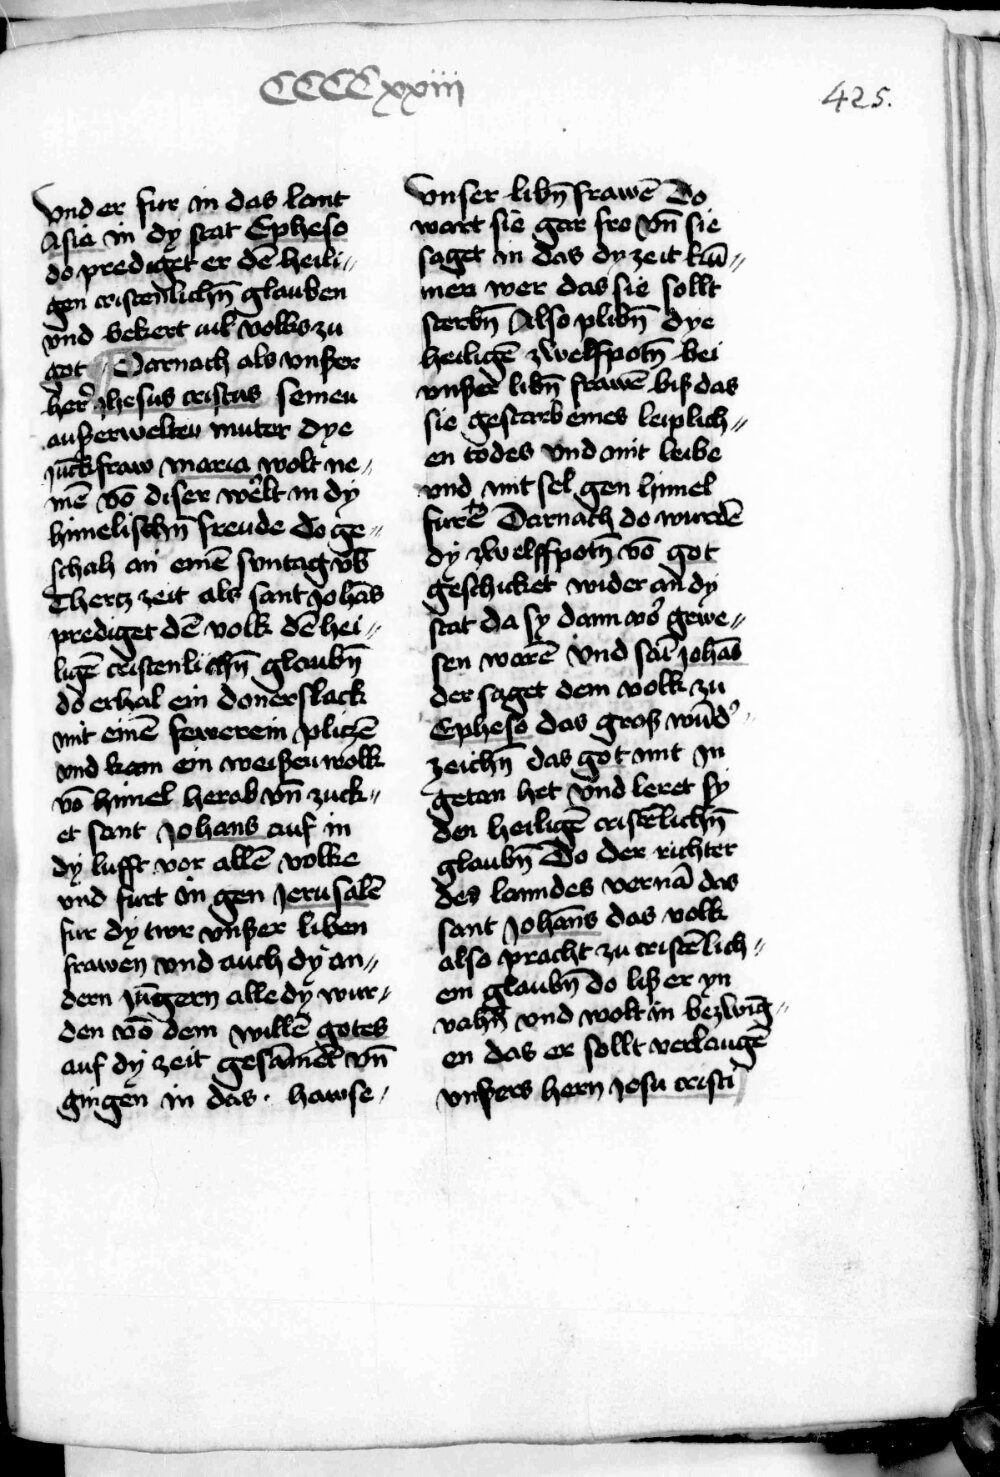 CCCCxxiii
425.
Vnd er fur in das lant
Asia in dy stat Epheso
do prediget er dē heili〃
gen cristenlichn̄ glauben
vnd bekert vil volks zu
got Darnach als vnßer
her' Jhesus cristus seineu
außerwelten muter dye
juckfraw maria wolt ne〃
mē vō diser werlt in dy
himelischn̄ freude Do ge〃
schah an einē suntag vb̄
Thertz zeit als sant Johās
prediget dē volk dē hei〃
ligē cristenlichn̄ glaubn̄
do erhal ein donerslack
mit einē fewerein plitzē
vnd kam ein weißeu wolk
vō himel herab vn̄ zuck〃
et sant Johans auf in
dy lufft vor allē volke
vnd furt in gen Jerusalē
fur dy tur vnßer liben
frawen vnd auch dy an〃
dern Jūgern alle dy wur〃
den vō dem willē gotes
auf dy zeit gesāmēt vn̄
gingen in das · hawse
Vnser libn̄ frawē Do
wart sie gar fro vn̄ sie
saget in das dy zeit kū〃
men wer das sie sollt
sterbn̄ Also plibn̄ dye
heiligē zwelfpotn̄ bei
vnßer libn̄ frawē biß das
sie gestarb eines leiplich〃
en todes vnd mit leibe
vnd mit sel gen himel
furē Darnach do wurdē
dy zwelffpotn̄ vō got
geschicket wider an dy
stat da sy dann vo' gewe〃
sen warē Vnd sāt johās
der saget dem volk zu
Epheso das groß wūd'
zeichn̄ das got mit In
getan het vnd leret sy
den heiligē cristēlichn̄
glaubn̄ Do der richter
des lanndes vernā das
sant Johāns das volk
also pracht zu cristēlich〃
em glaubn̄ do liß er yn
vahn̄ vnd wolt in bezwīg〃
en das er sollt verlaugē
vnßers hern Jesu cristi